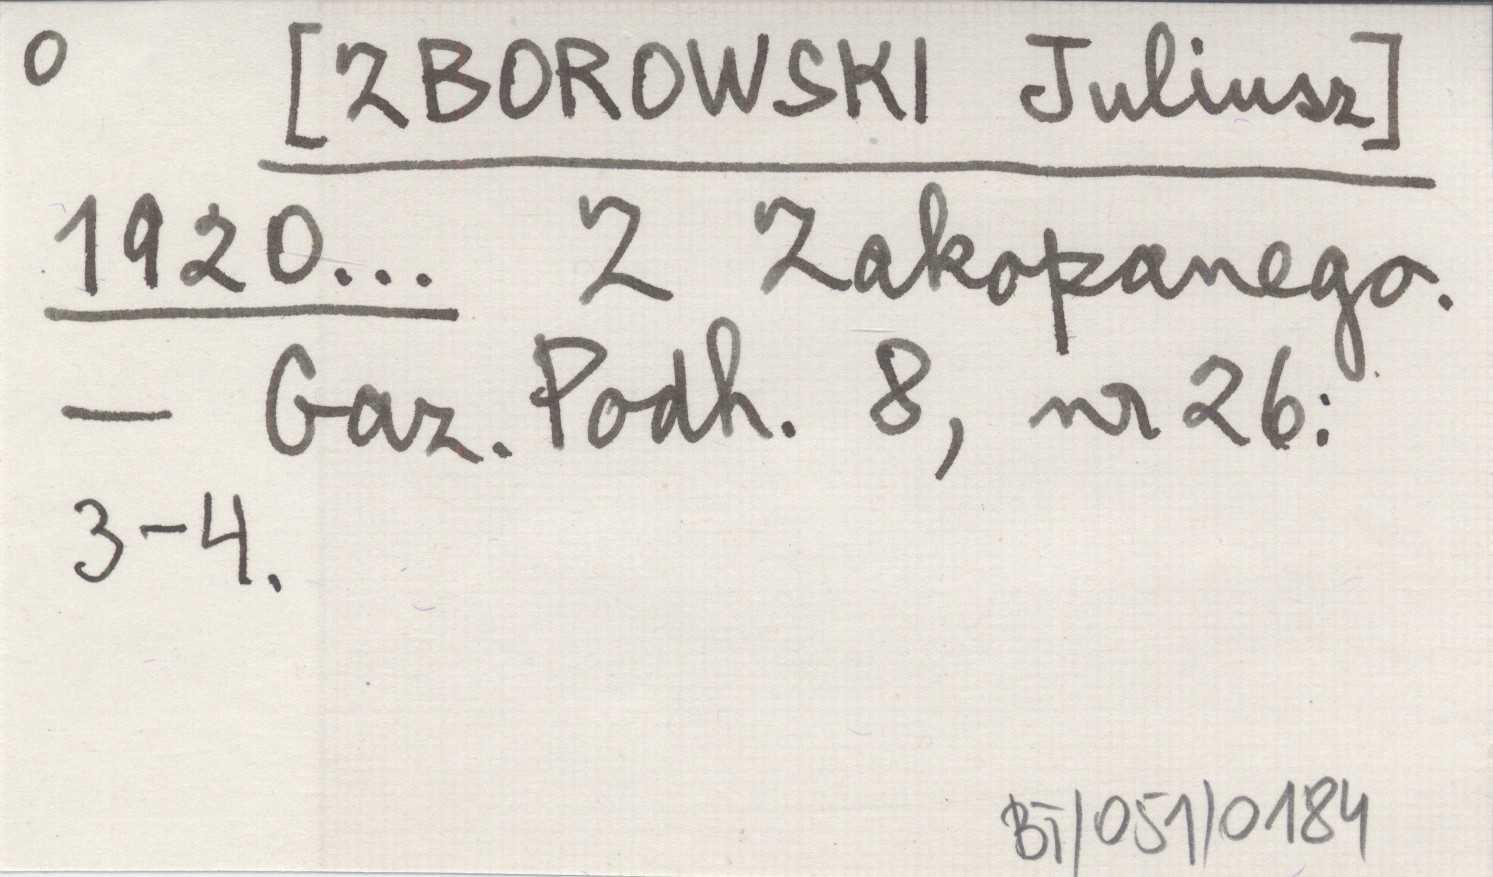 O [ZBOROWSKI Juliusz]
1920... Z Zakopanego.
— Gaz. Podh. 8, nr 26:
3-4.
BT/051/0184